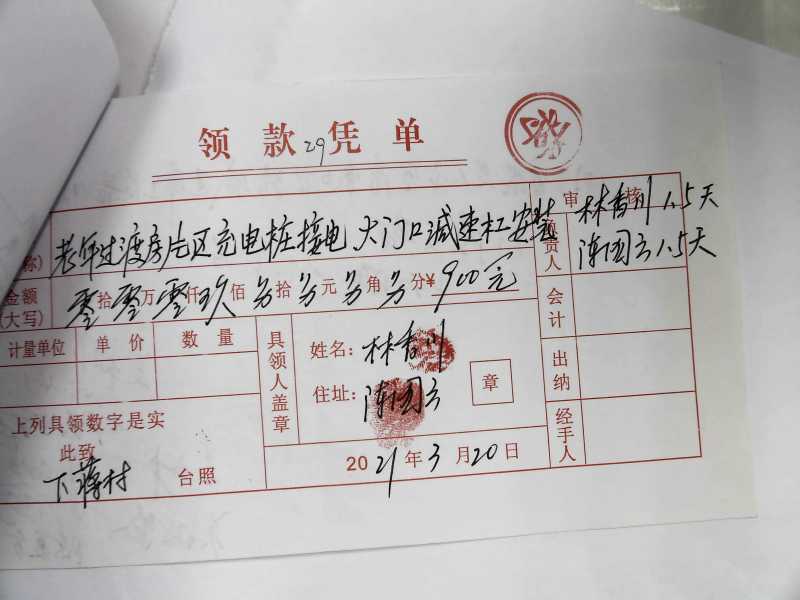 领款凭单
29
审核
称) 老年过渡房片区充电桩接电 大门口减速杠安装
负责人 林香川 1.5天
陈国云 1.5天
金额(大写) 零拾零万零仟玖佰 拾 元 角 分¥ 900元
会计
计量单位 单价 数量
具领人盖章
姓名: 林香川
住址: 陈国云
章
出纳
上列具领数字是实
此致
下蒋村 台照
2021年3月20日
经手人